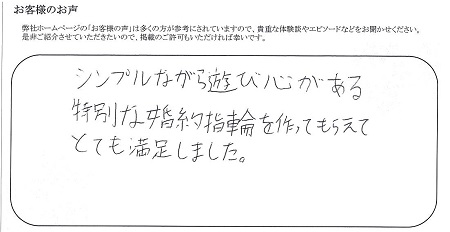 お客様のお声
弊社ホームページの「お客様の声」は多くの方が参考にされていますので、貴重な体験談やエピソードなどをお聞かせください。
是非ご紹介させていただきたいので、掲載のご許可もいただければ幸いです。
シンプルながら遊び心がある
特別な婚約指輪を作ってもらえて
とても満足しました。